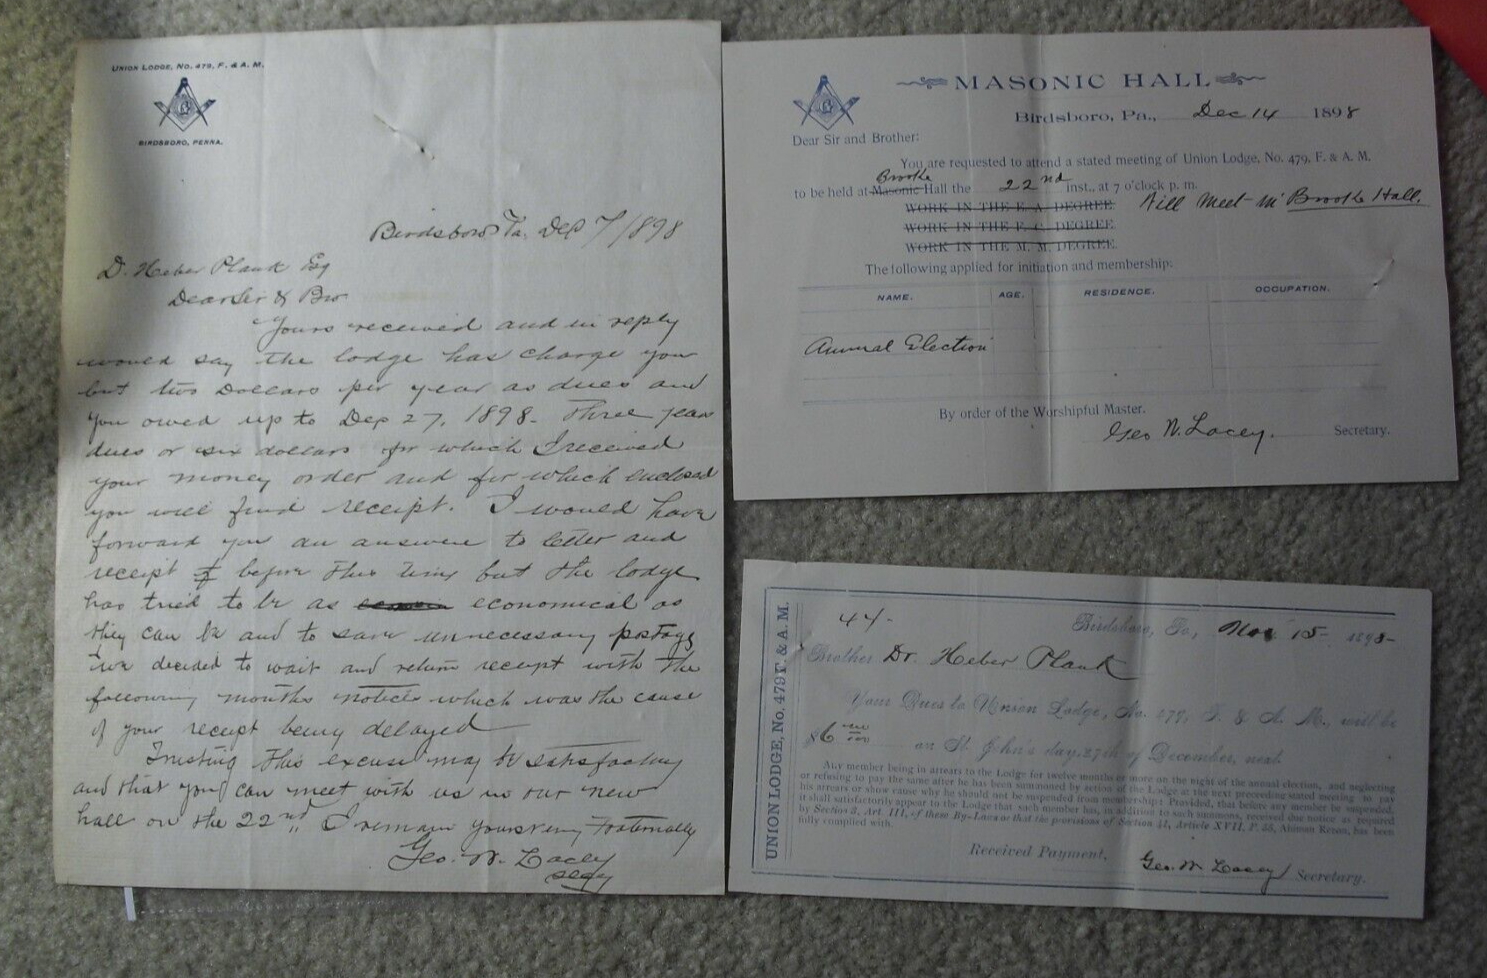 UNION LODGE, NO. 479, F. & A. M.
G
BIRDSBORO, PENNA.
Birdsboro Pa. Dec 7/1898
D. Heber Plank Esq
Dear Sir & Bro
Yours received and in reply
would say the lodge has charge you
but two Dollars per year as dues and
you owed up to Dec 27, 1898. Three years
dues or six dollars for which I received
your money order and for which enclosed
you will find receipt. I would have
forward you an answere to letter and
receipt before this time but the lodge
has tried to be as economical as
they can be and to save unnecessary postage
we decided to wait and return receipt with the
following months notice which was the cause
of your receipt being delayed
Trusting this excuse may be satisfactory
and that you can meet with us in our new
hall on the 22nd, I remain yours very Fraternally
Geo. W. Lacey
Secy
MASONIC HALL
G
Birdsboro, Pa., Dec 14 1898
Dear Sir and Brother:
You are requested to attend a stated meeting of Union Lodge, No. 479, F. & A. M.
Brooke
to be held at Masonic Hall the 22nd inst., at 7 o'clock p. m.
WORK IN THE E. A. DEGREE Will meet in Brooke Hall.
WORK IN THE F. C. DEGREE
WORK IN THE M. M. DEGREE
The following applied for initiation and membership:
NAME. AGE. RESIDENCE. OCCUPATION.
Annual Election
By order of the Worshipful Master.
Geo W. Lacey. Secretary.
UNION LODGE, No. 479 F. & A. M.
44-
Birdsboro, Pa., Nov 15 1898-
Brother Dr. Heber Plank
Your Dues to Union Lodge, No. 479, F. & A. M., will be
$6 on St. John's day, 27th of December, next.
Any member being in arrears to the Lodge for twelve months or more on the night of the annual election, and neglecting
or refusing to pay the same after he has been summoned by action of the Lodge at the next preceding stated meeting to pay
his arrears or show cause why he should not be suspended from membership: Provided, that before any member be suspended,
it shall satisfactorily appear to the Lodge that such member has, in addition to such summons, received due notice as required
by Section 8, Art. III, of these By-Laws or that the provisions of Section 41, Article XVII, P. 58, Ahiman Rezon, has been
fully complied with.
Received Payment,
Geo. W. Lacey Secretary.